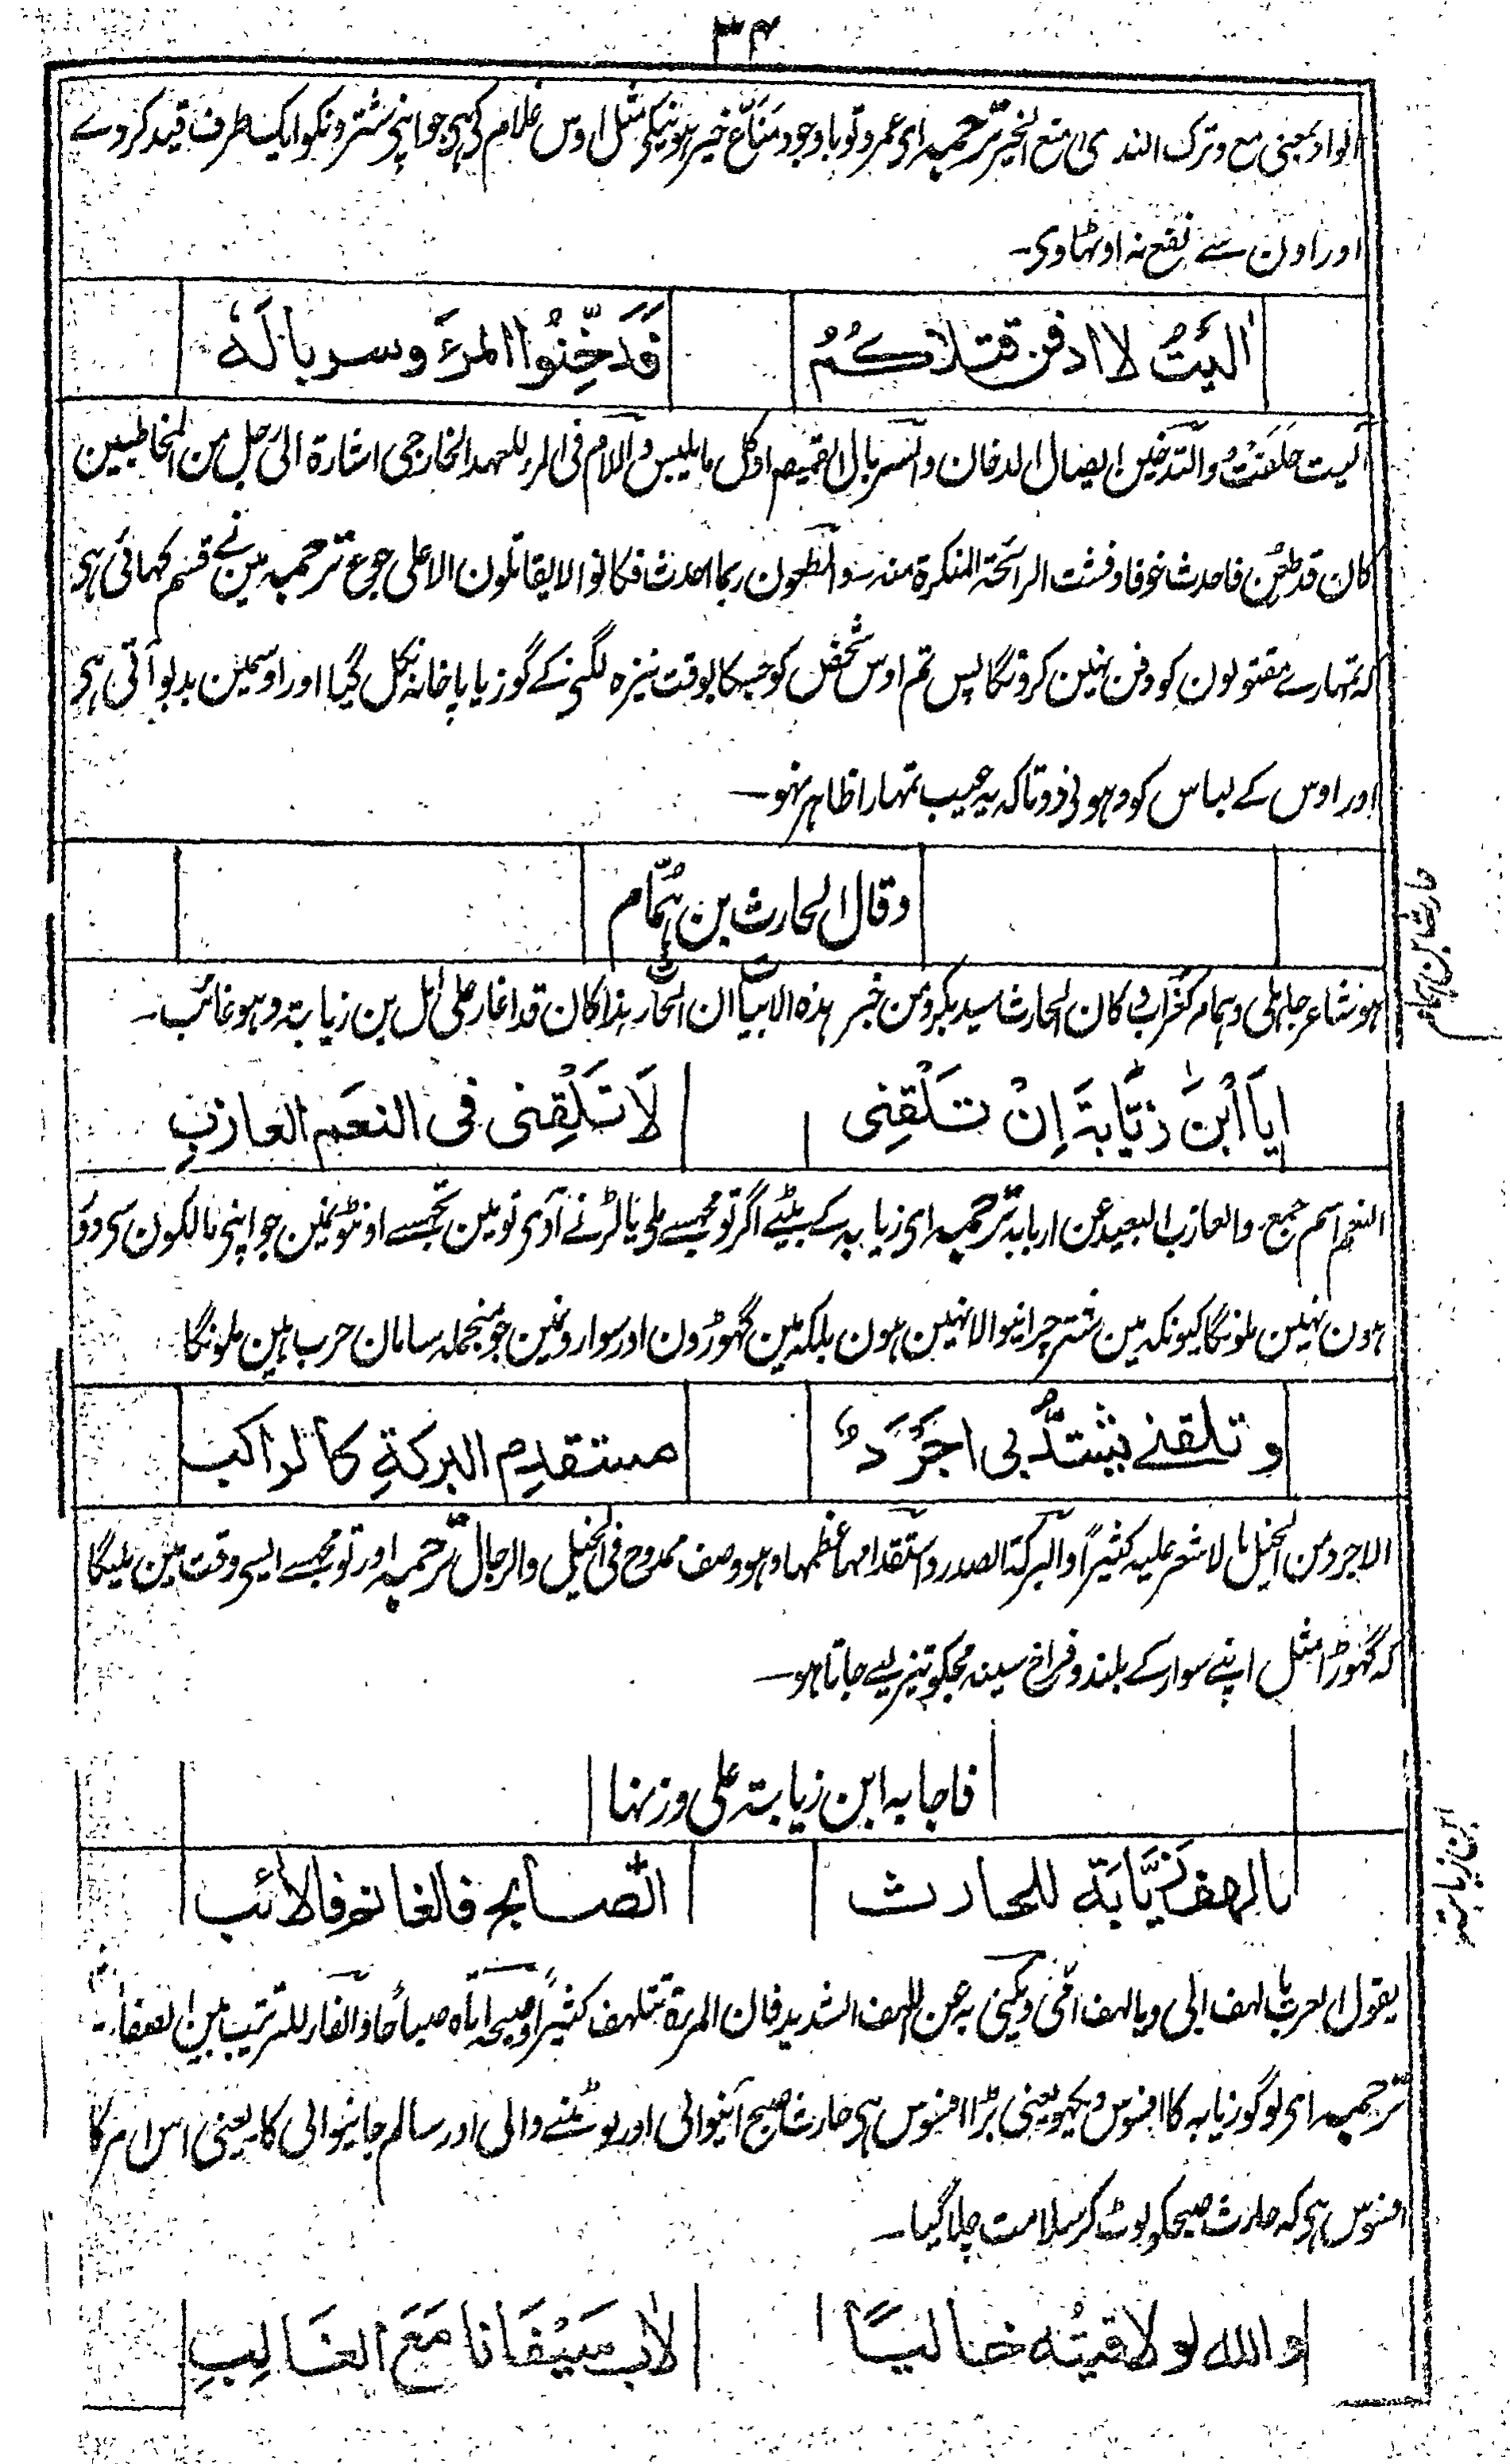 ۳۴
الواو بمعنی مع وترک الندی ای منع الخیر ترجمہ ای عمرو تو باوجود مناع خیر ہونیکے مثل اوس غلام کی ہی جو اپنی شترونکو ایک طرف قید کردے
اور اون سے نفع نہ اوٹھاوی۔
اٰلیَتُ لا ادفن قتلاکُمُ فَدَخِّنُوا المرءَ وسربالَهٗ
آلیت حلفتُ والتدخین ایصال الدخان والسربال القمیص او کل ما یلبس واللام فی المرء للعہد الخارجی اشارة الی رجل من المخاطبین
کان قد طُعِن فاحدث خوفا وفشت الرائحة المنکرة منہ والمطعون ربما احدث فکانوا لا یقاتلون الا علی جوع ترجمہ مین نے قسم کھائی ہی
کہ تمہارے مقتولون کو دفن نہین کرونگا پس تم اوس شخص کو جسکا بوقت نیزہ لگنے کے گوز یا پاخانہ نکل گیا اور اوسمین بدبو آتی ہی
اور اوس کے لباس کو دہونی دو تاکہ یہ عیب تمہارا ظاہر نہو۔
وقال الحارث بن ہمّام
حارث بن ہمام
ہو شاعر جاہلی وہمام کغراب وکان الحارث سید بکر ومن خبر ہذہ الابیات ان الحارث ہذا کان قد اغار علی اہل بن زیابتہ وہو غائب۔
ایَا ابْنَ زَیَّابَةَ اِنْ تَلْقَنِی لَا تَلْقَنِی فی النعَم العازبِ
النعم اسم جمع والعازب البعید عن اربابہ ترجمہ ای زیابہ کے بیٹے اگر تو مجہسے ملی یا لڑنے آوی تو مین تجہسے اونٹونمین جو اپنی مالکون سی دور
ہون نہین ملونگا کیونکہ مین شتر چرانیوالا نہین ہون بلکہ مین گہوڑون اور سوارونمین جو منجملہ سامان حرب ہین ملونگا
وتلقنے یشتدُّ بی اجرَدُ مستقدِمِ البرکةِ کالراکب
الاجرد من الخیل ما لا شعر علیہ کثیراً والبرکة الصدر واستقدامہا عظمہا وہو وصف ممدوح فی الخیل والرجال ترجمہ اور تو مجہسے ایسی وقت مین ملیگا
کہ گہوڑا مثل اپنے سوار کے بلند وفراخ سینہ مجکو تیز لیے جاتا ہو۔
فاجابہ ابن زیابتہ علی وزنہا
ابن زیابتہ
یالهف زَیَّابَة للحارث الصّابح فالغانم فالاٰئب
یقول العرب یا لہف ابی ویا لہف امی ویکنی بہ عن اللہف الشدید فان المرءة تتلہف کثیراً وصبحہ اتاہ صباحًا والفاء للترتیب بین الصفات۔
ترجمہ ای لوگو زیابہ کا افسوس دیکہو یعنی بڑا افسوس ہی حارث صبح آنیوالی اور لوٹنے والی اور سالم جانیوالی کا یعنی اس امر کا
افسوس ہی کہ حارث صبحکو لوٹ کر سلامت چلا گیا۔
والله لو لاقیتُه خالیًا لاٰب سَیْفَانا مَعَ الغَالِبِ